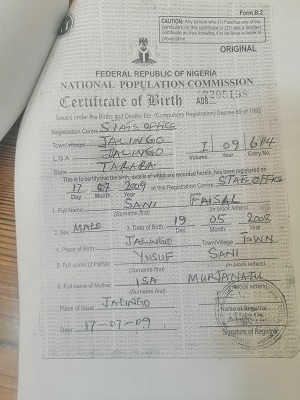 Form B.2
CAUTION: Any person who (1) Falsifies any of the
particulars on this certificate or (2) uses a falsified
certificate as true knowing it to be false is liable to
prosecution
ORIGINAL
FEDERAL REPUBLIC OF NIGERIA
NATIONAL POPULATION COMMISSION
Certificate of Birth
Issued under the Births and Deaths Etc (Compulsory Registration) Decree 69 of 1992
Registration Centre STATE OFFICE
Town/Village JALINGO
L.G.A. JALINGO I 09 6114
Volume Year Entry No.
State TARABA
This is to certify that the birth, details of which are recorded herein, has been registered on
17 07 2009 at this Registration Centre STATE OFFICE
Day Month Year
1. Full Name SANI FAISAL
(Surname first) (in block letters)
2. Sex MALE 3. Date of Birth 19 05 2008
Day Month Year
4. Place of Birth JALINGO Town/Village TOWN
5. Full name of Father YUSUF SANI
(Surname first) (in block letters)
6. Full name of Mother ISA MURJANATU
(Surname first) (in block letters)
Place of Issue JALINGO
Name of Registrar
Date 17-07-09
Signature of Registrar